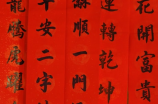 花開富貴
運轉乾坤
順一門
平安二字
龍騰虎躍